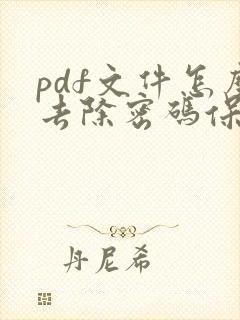 pdf文件怎
去除密码保
丹尼希